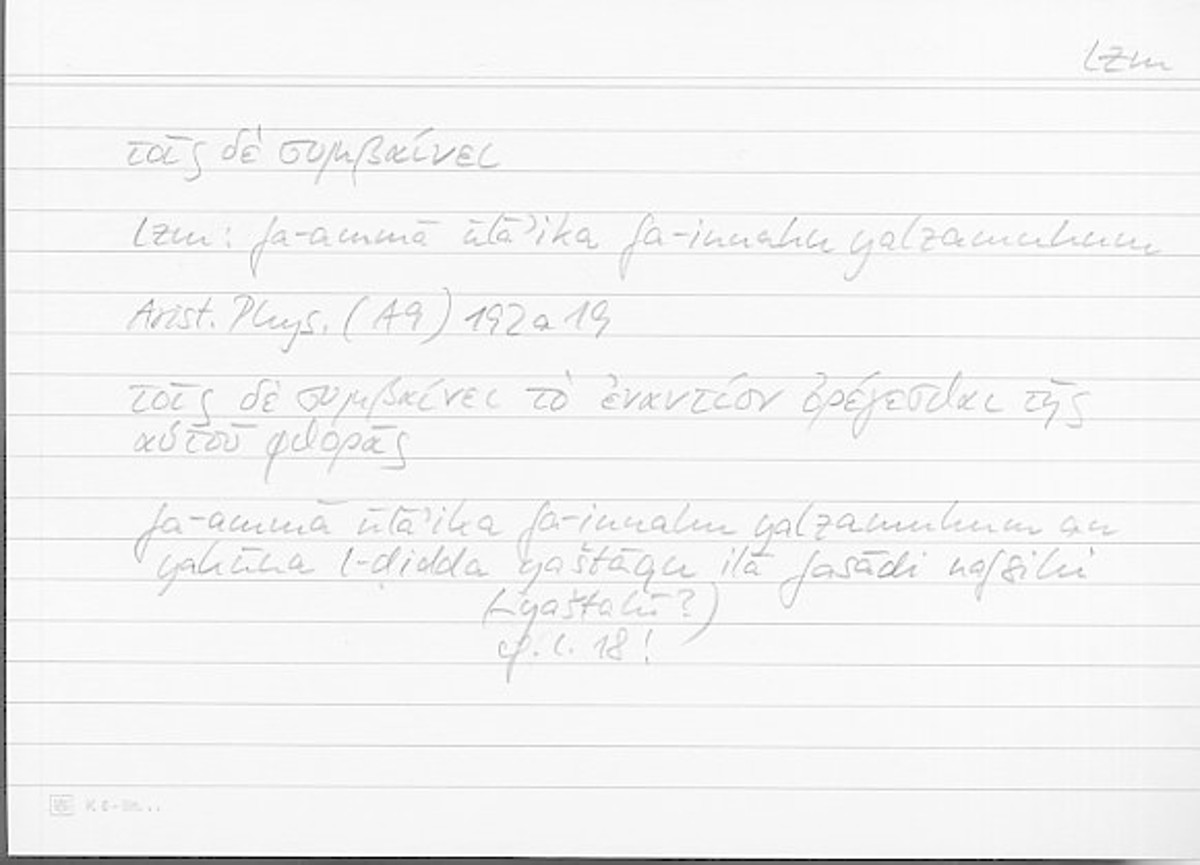 lzm
τοῖς δὲ συμβαίνει
lzm: fa-ammā ūlāʾika fa-innahu yalzamuhum
Arist. Phys. (A9) 192a19
τοῖς δὲ συμβαίνει τὸ ἐναντίον ὀρέγεσθαι τῆς
αὑτοῦ φθορᾶς
fa-ammā ūlāʾika fa-innahu yalzamuhum an
yakūna l-ḍidda yaštāqu ilā fasādi nafsihi
(yaštahī?)
cf. l. 18!